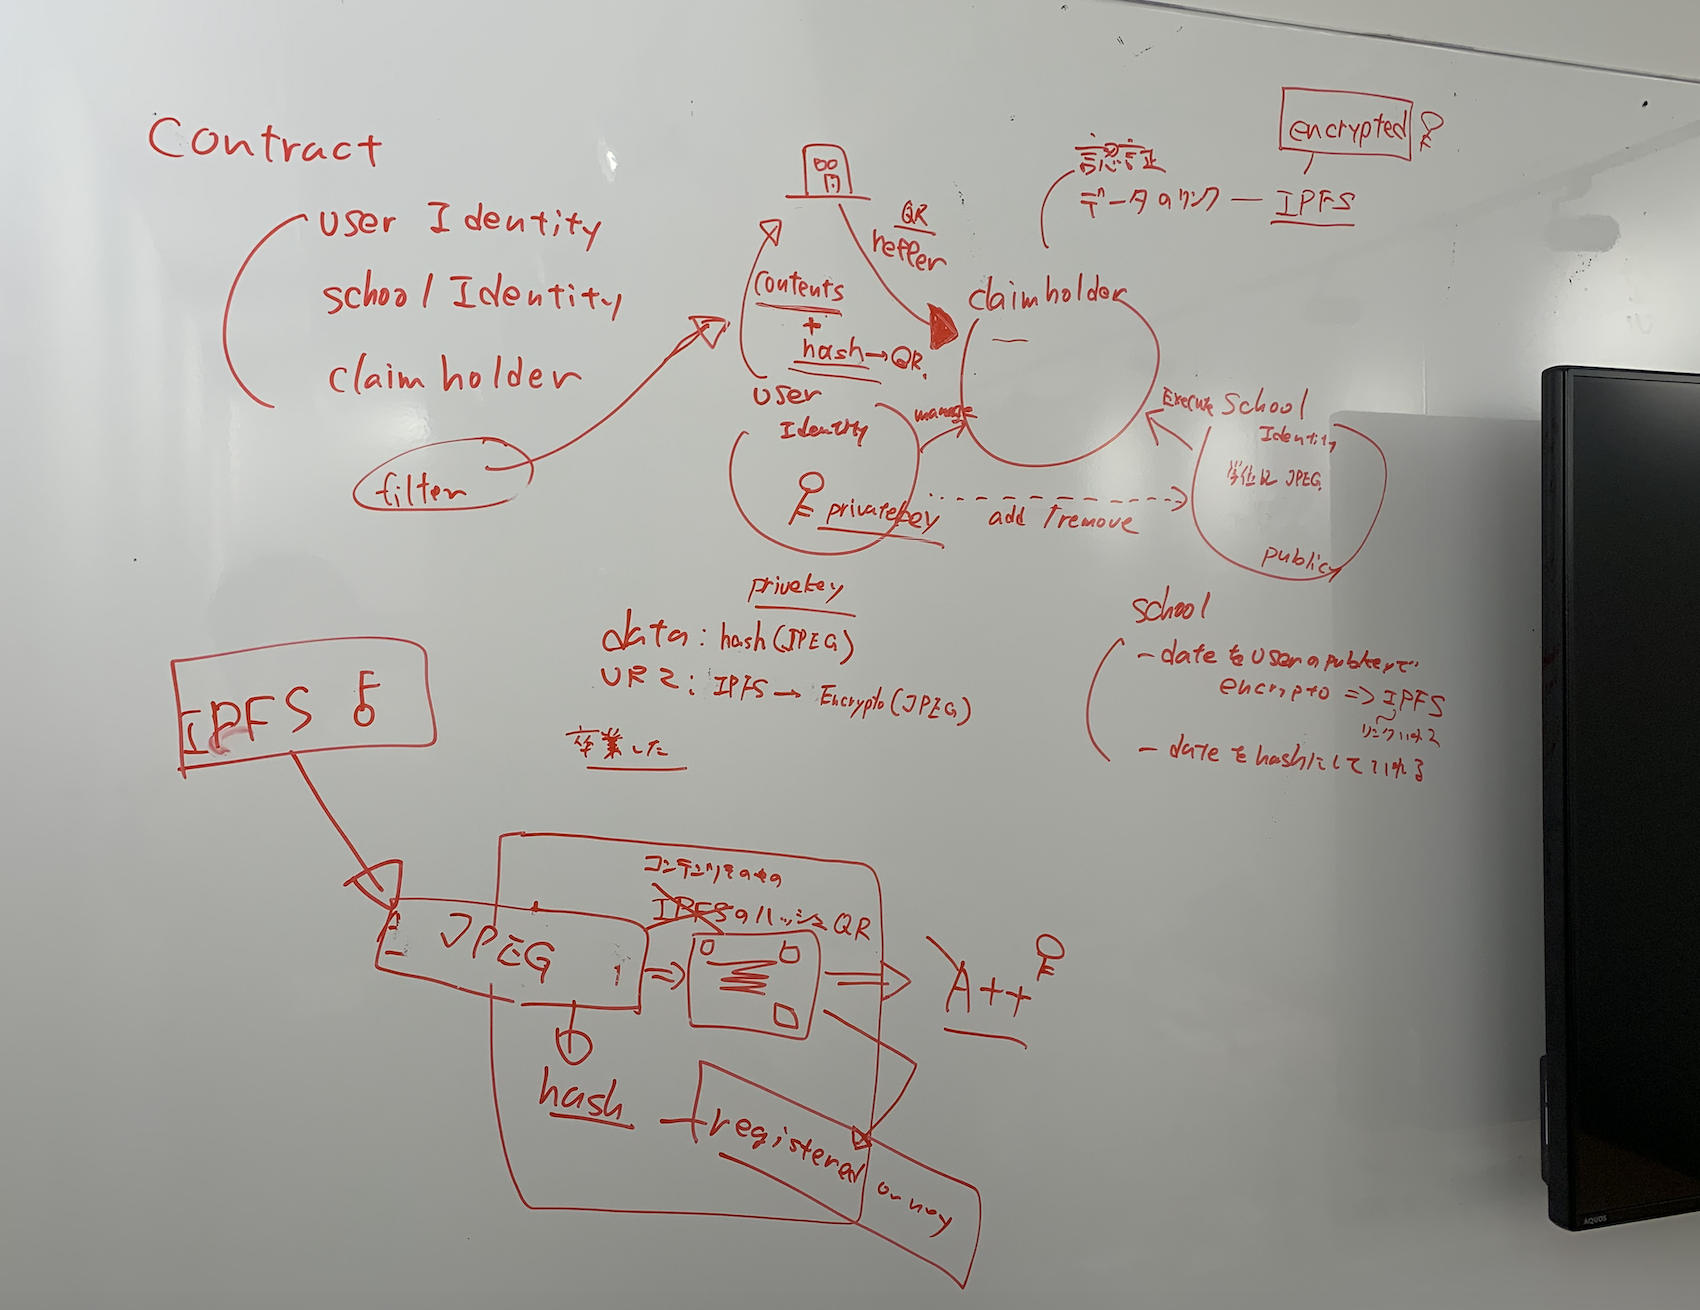 Contract
user Identity
school Identity
claim holder
filter
QR
reffer
contents
+
hash→QR.
user
Identity
privatekey
manage
add/remove
claimholder
データのリンク — IPFS
encrypted
Execute School
Identity
JPEG
public
privekey
data: hash(JPEG)
IPFS → Encrypto(JPEG)
卒業した
school
- dateをuserのpubkeyで
encrypto => IPFS
- dateをhashにしていれる
IPFS
JPEG
コンテンツそのもの
IPFSのハッシュQR
A++
hash
registered or noy
AQUOS